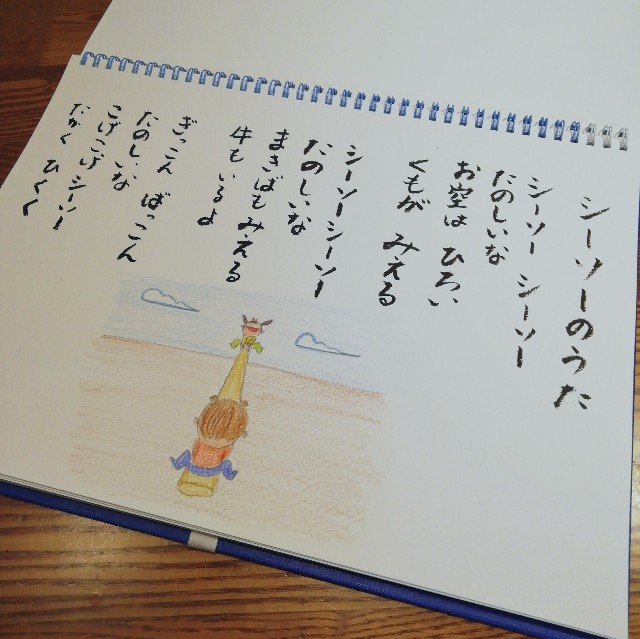 シーソーのうた
シーソー シーソー
たのしいな
お空は ひろい
くもが みえる
シーソーシーソー
たのしいな
まきばも みえる
牛も いるよ
ぎっこん ばっこん
たのしいな
こげこげ シーソー
たかく ひくく